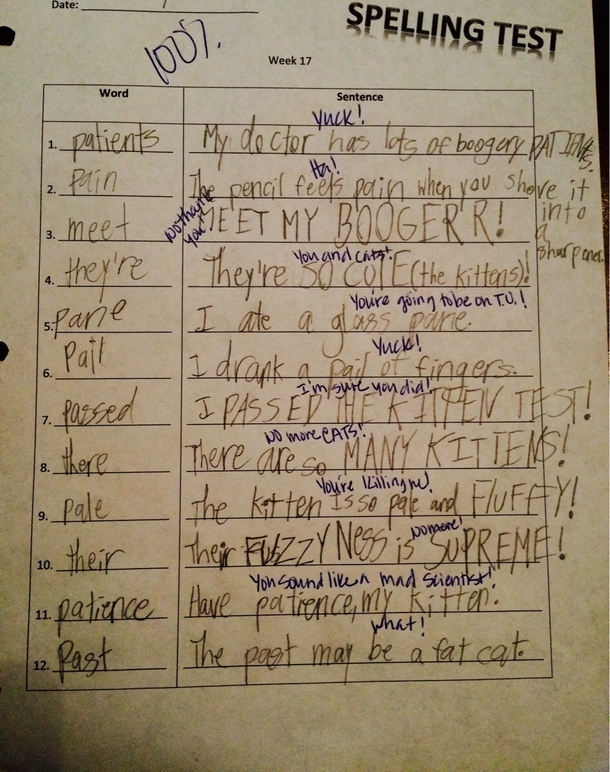 Date:
SPELLING TEST
100%
Week 17
Word Sentence
Yuck!
1. patients My doctor has lots of boogery PATIENTS.
Ha!
2. pain The pencil feels pain when you shove it into a sharpener.
No thank you!
3. meet MEET MY BOOGER'R!
You and cats!
4. they're They're SO CUTE (the kittens)!
You're going to be on T.V.!
5. pane I ate a glass pane.
Yuck!
6. pail I drank a pail of fingers.
I'm sure you did!
7. passed I PASSED THE KITTEN TEST!
NO more CATS!
8. there There are so MANY KITTENS!
You're killing me!
9. pale The kitten Is so pale and FLUFFY!
No more!
10. their Their FUZZYNess is SUPREME!
You sound like a mad scientist!
11. patience Have patience, my kitten.
What!
12. Past The past may be a fat cat.